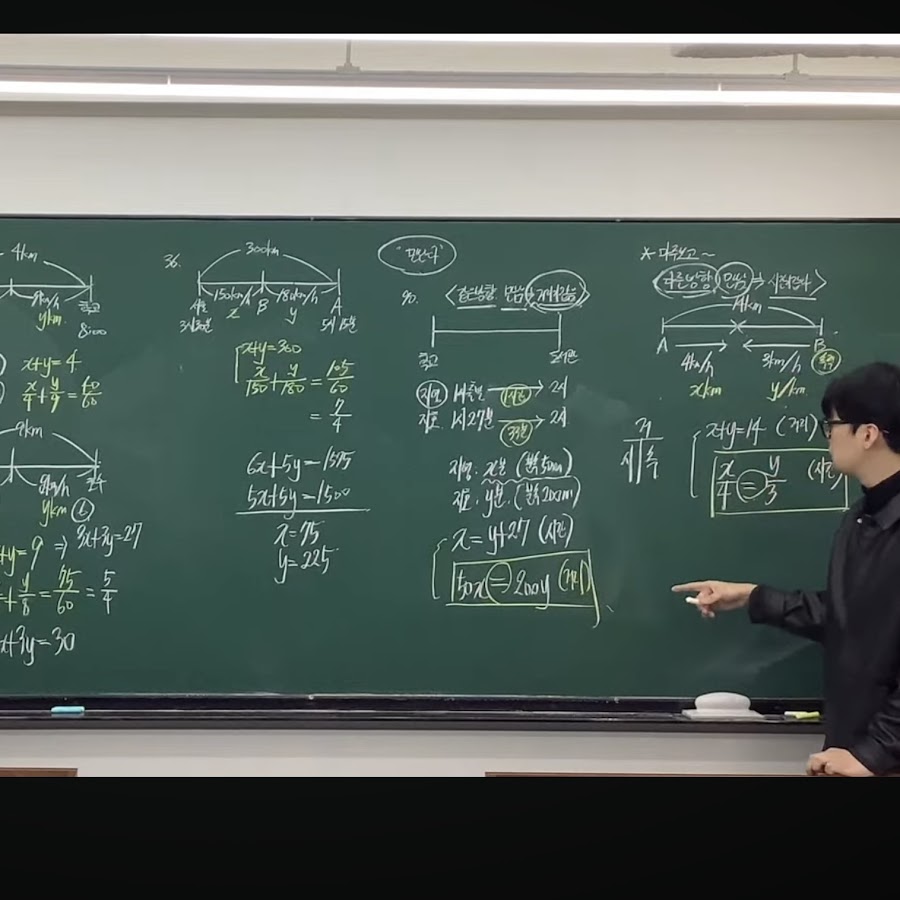 4km
8km/h
ykm
학교
x+y=4
x/4+y/9=60/60
9km
8km/h
ykm
+y=9 ⇒ 3x+3y=27
+y/8=75/60=5/4
x+3y=30
36.
300km
150km/h B 180km/h A
x y
서울
5시 15분
x+y=300
x/150+y/180=105/60
=7/4
6x+5y=1575
5x+5y=1500
x=75
y=225
"만난다"
40.
<같은방향 만남 거리같음>
학교 도서관
→ 2시
지호 1시 27분 → 2시
x분 (분속 50m)
지호: y분 (분속 200m)
x=y+27 (시간)
50x=200y (거리)
* 마주보고~
<다른방향 만남 ⇒ 시간같다>
14km
A B
4km/h 3km/h
xkm y/km
거
시 속
x+y=14 (거리)
x/4=y/3 (시간)